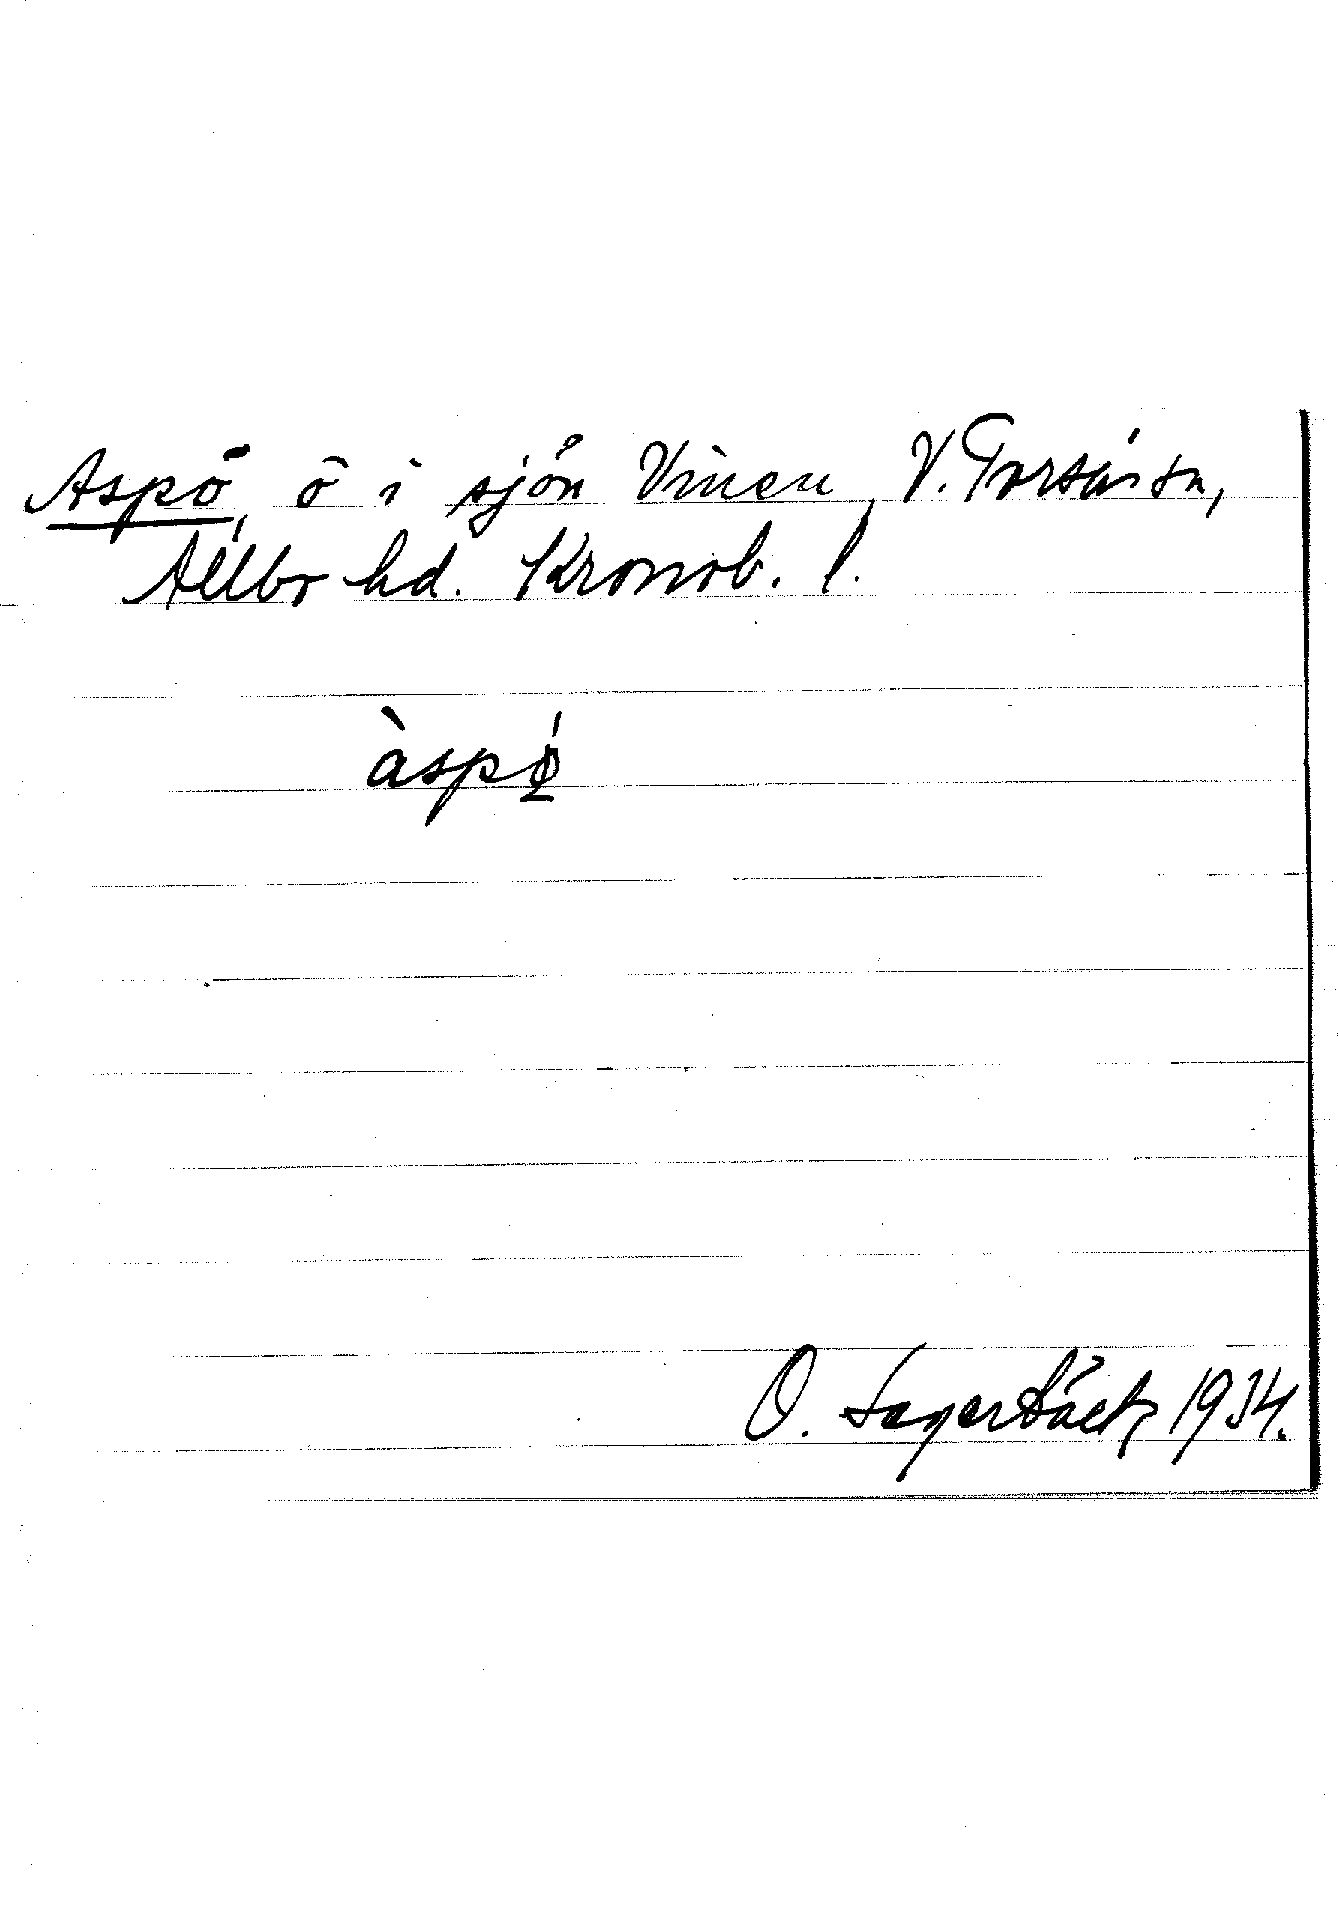 Aspö, ö i sjön Vinen, V. Torsås sn,
Allbo hd. Kronob. l.
àspö̲́
O. Lagerbäck, 1934.